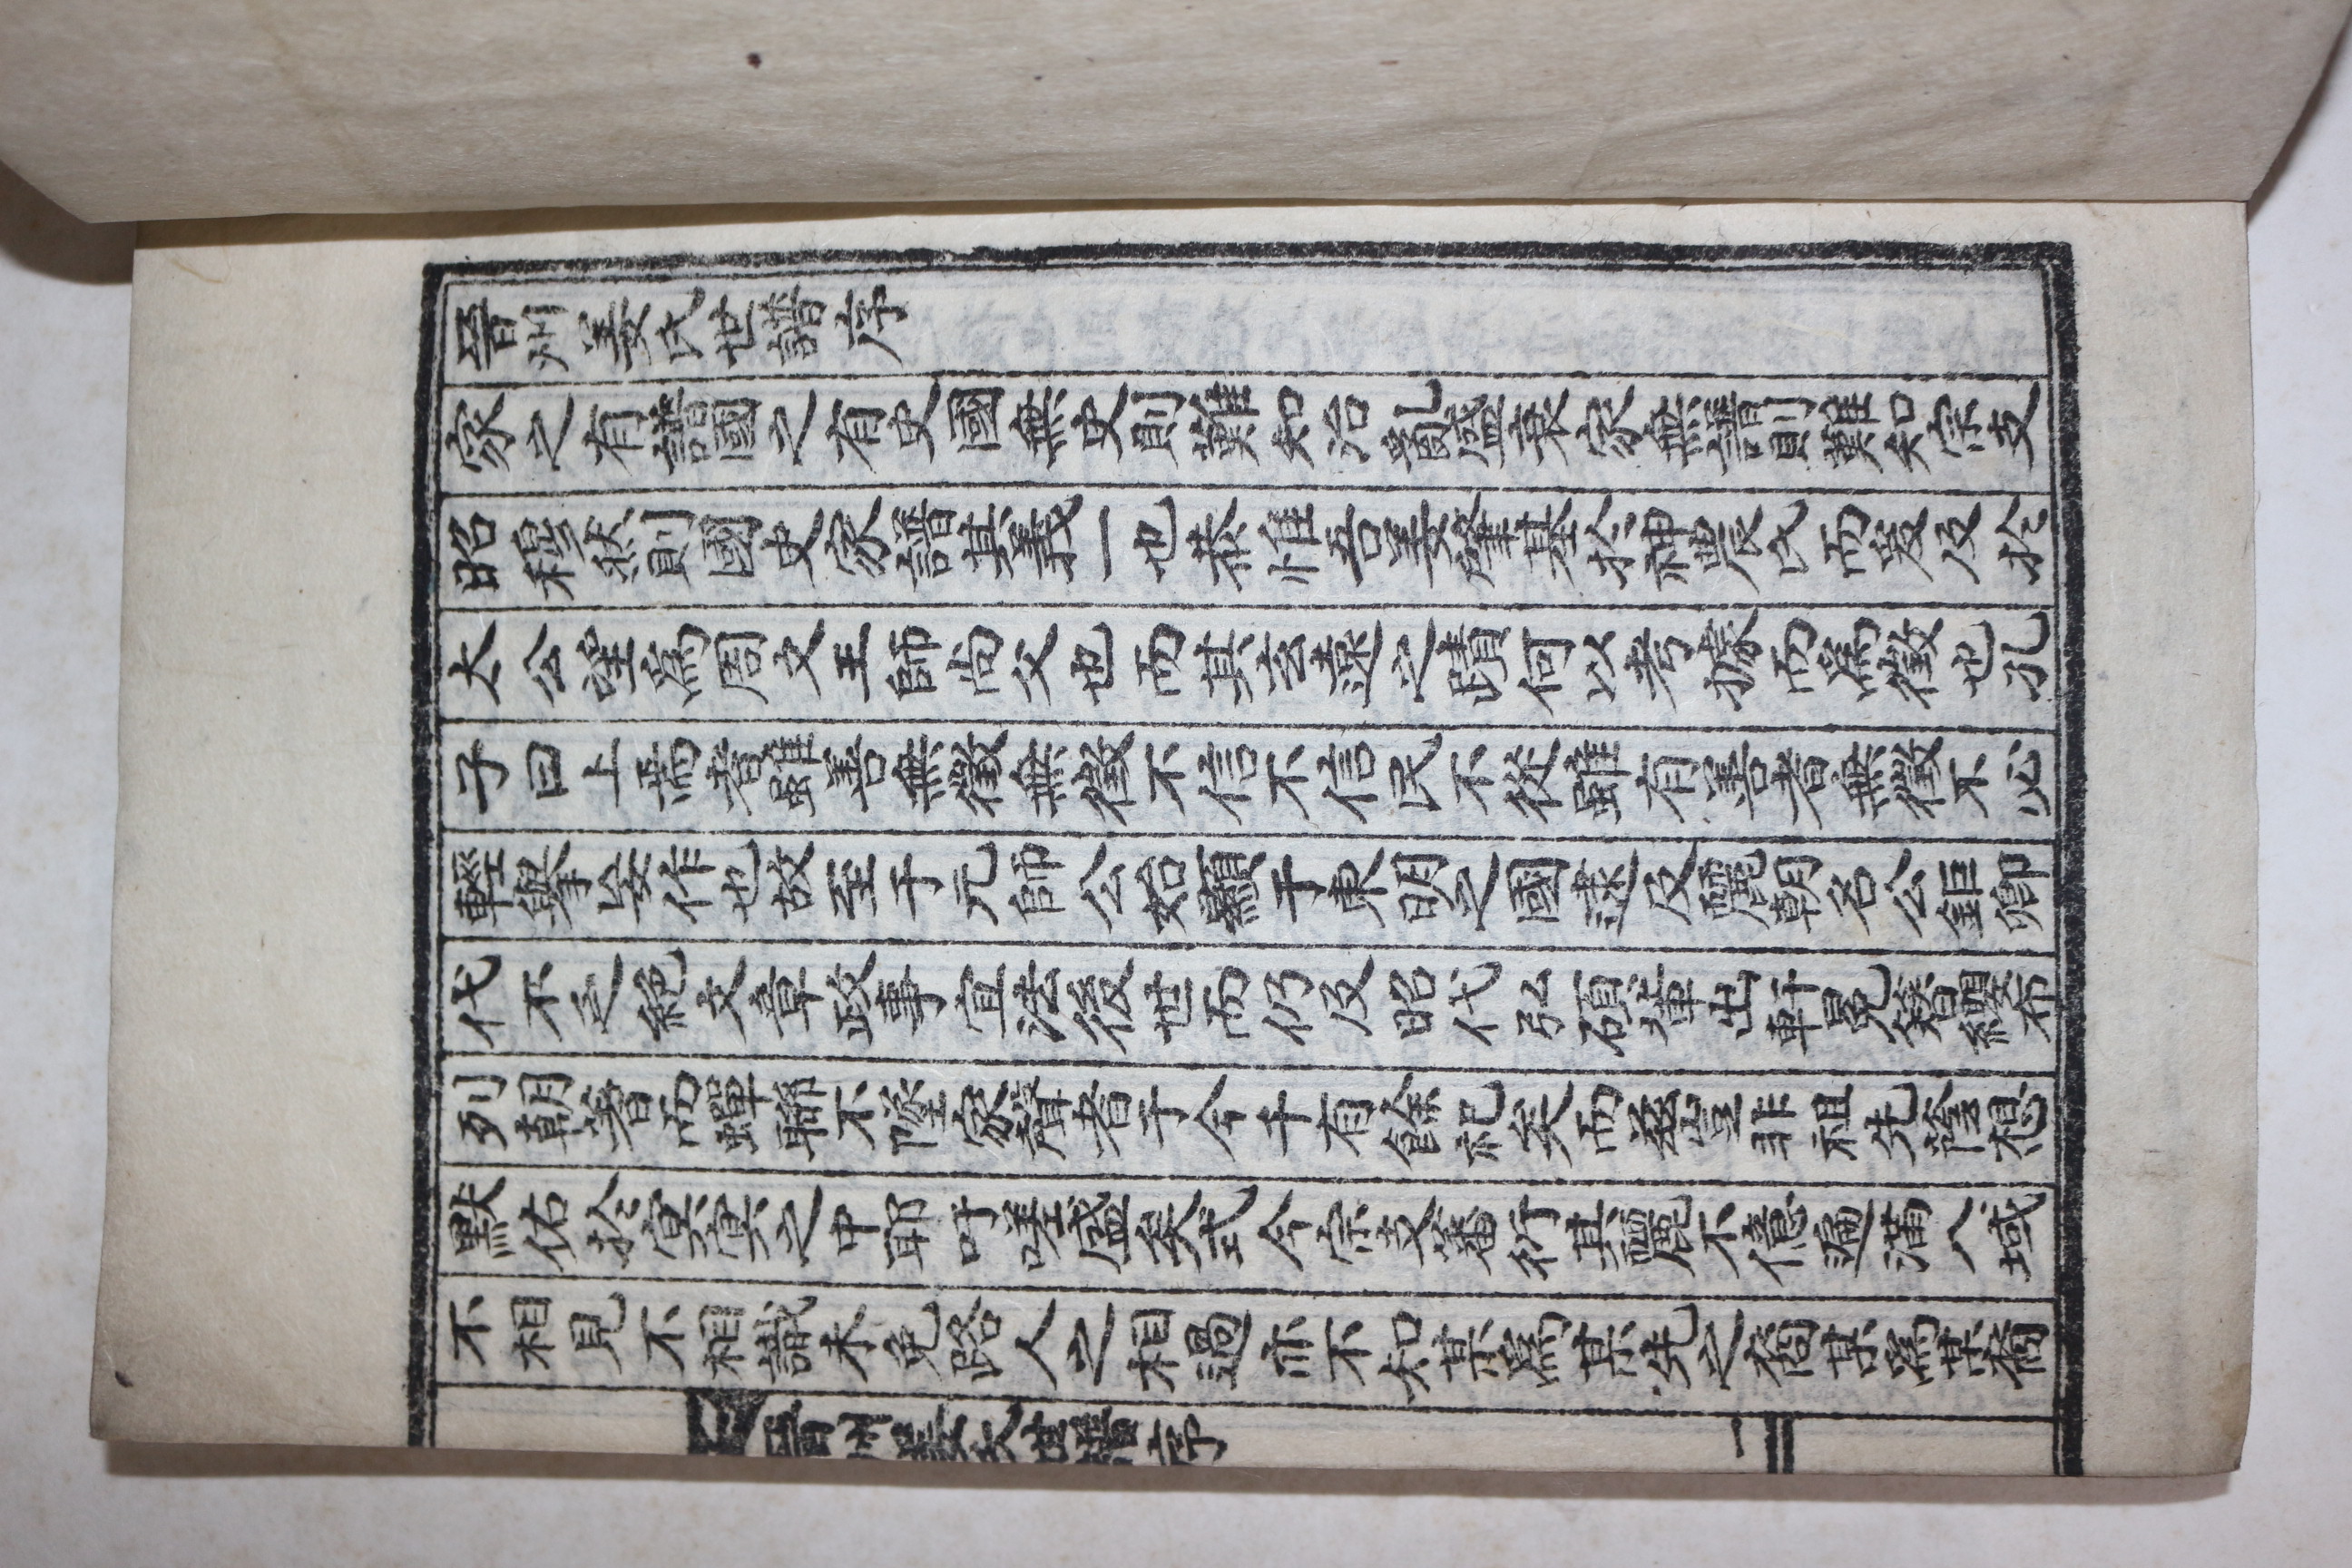 晉州姜氏世譜序
家之有譜國之有史國無史則難知治亂盛衰家無譜則難知宗支
昭穆然則國史家譜其義一也恭惟吾姜肇基於神農氏而爰及於
太公望爲周文王師尙父也而其玄邈之蹟何以考據而爲徵也孔
子曰上焉者雖善無徵無徵不信不信民不從雖有善者無徵不必
輕擧妄作也故至于元帥公始顯于東明之國逮及麗朝名公鉅卿
代不乏絶文章政事宜法後世而仍及昭代弘碩輩出軒冕簪纓布
列朝著而蟬聯不墜家聲者于今千有餘紀矣而玆豈非祖先蔭德
默佑於冥冥之中耶吁嗟盛矣式今宗支蕃衍其麗不億遍滿八域
不相見不相識未免路人之相過亦不知某爲某先之裔某爲某裔
晉州姜氏世譜序 一